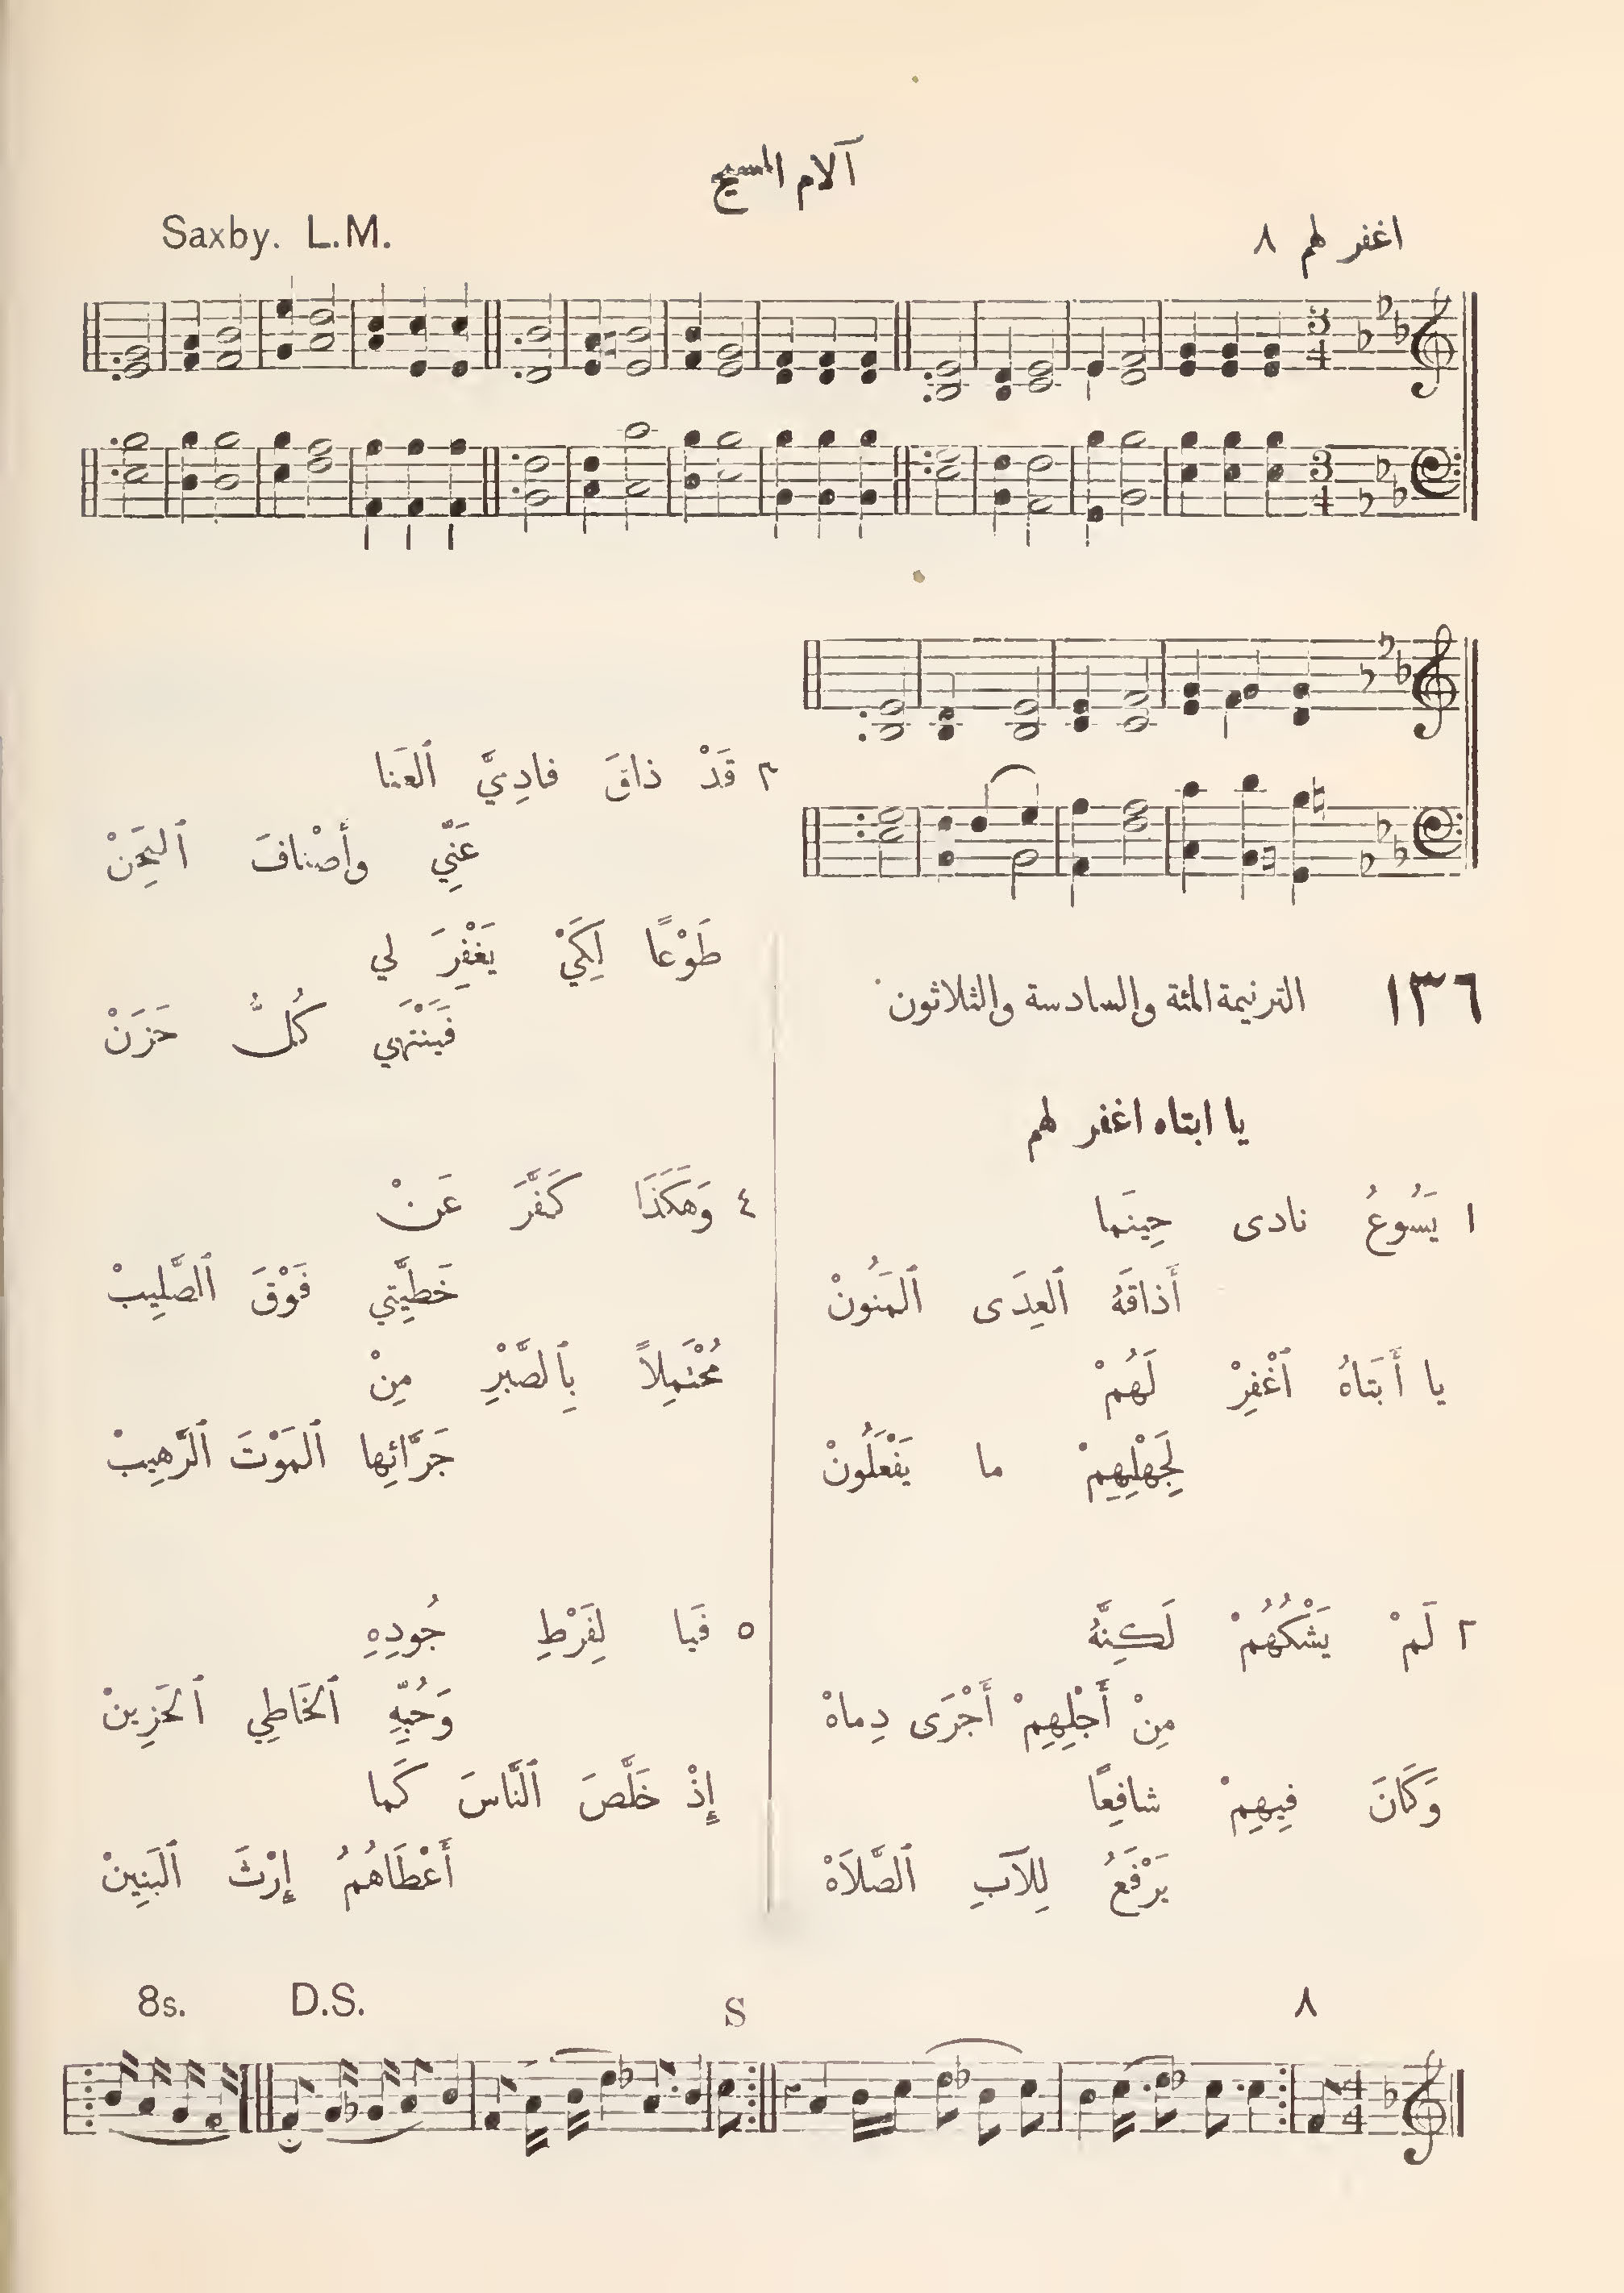 آلام المسيح
اغفر لهم ٨
Saxby. L.M.
١٣٦ الترنيمة المئة والسادسة والثلاثون
يا ابتاه اغفر لهم
١ يَسُوعُ نادى حِينَما
أَذاقَهُ ٱلعِدَى ٱلمَنُونْ
يا أَبَتَاهُ ٱغْفِرْ لَهُمْ
لِجَهْلِهِمْ ما يَفْعَلُونْ
٢ لَمْ يَشْكُهُمْ لَكِنَّهُ
مِنْ أَجْلِهِمْ أَجْرَى دِماهْ
وَكَانَ فِيهِمْ شافِعًا
يَرْفَعُ لِلآبِ ٱلصَّلاَهْ
٣ قَدْ ذاقَ فادِيَّ ٱلعَنا
عَنِّي وأصْنافَ ٱلمِحَنْ
طَوْعًا لِكَيْ يَغْفِرَ لي
فَيَنْتَهِي كُلُّ حَزَنْ
٤ وَهَكَذَا كَفَّرَ عَنْ
خَطِيَّتِي فَوْقَ ٱلصَّلِيبْ
مُحْتَمِلاً بِٱلصَّبْرِ مِنْ
جَرَّائِها ٱلمَوْتَ ٱلرَّهِيبْ
٥ فَيا لِفَرْطِ جُودِهِ
وَحُبِّهِ ٱلخَاطِي ٱلحَزِينْ
إِذْ خَلَّصَ ٱلنَّاسَ كَما
أَعْطَاهُمُ إِرْثَ ٱلبَنِينْ
8s. D.S. S ٨